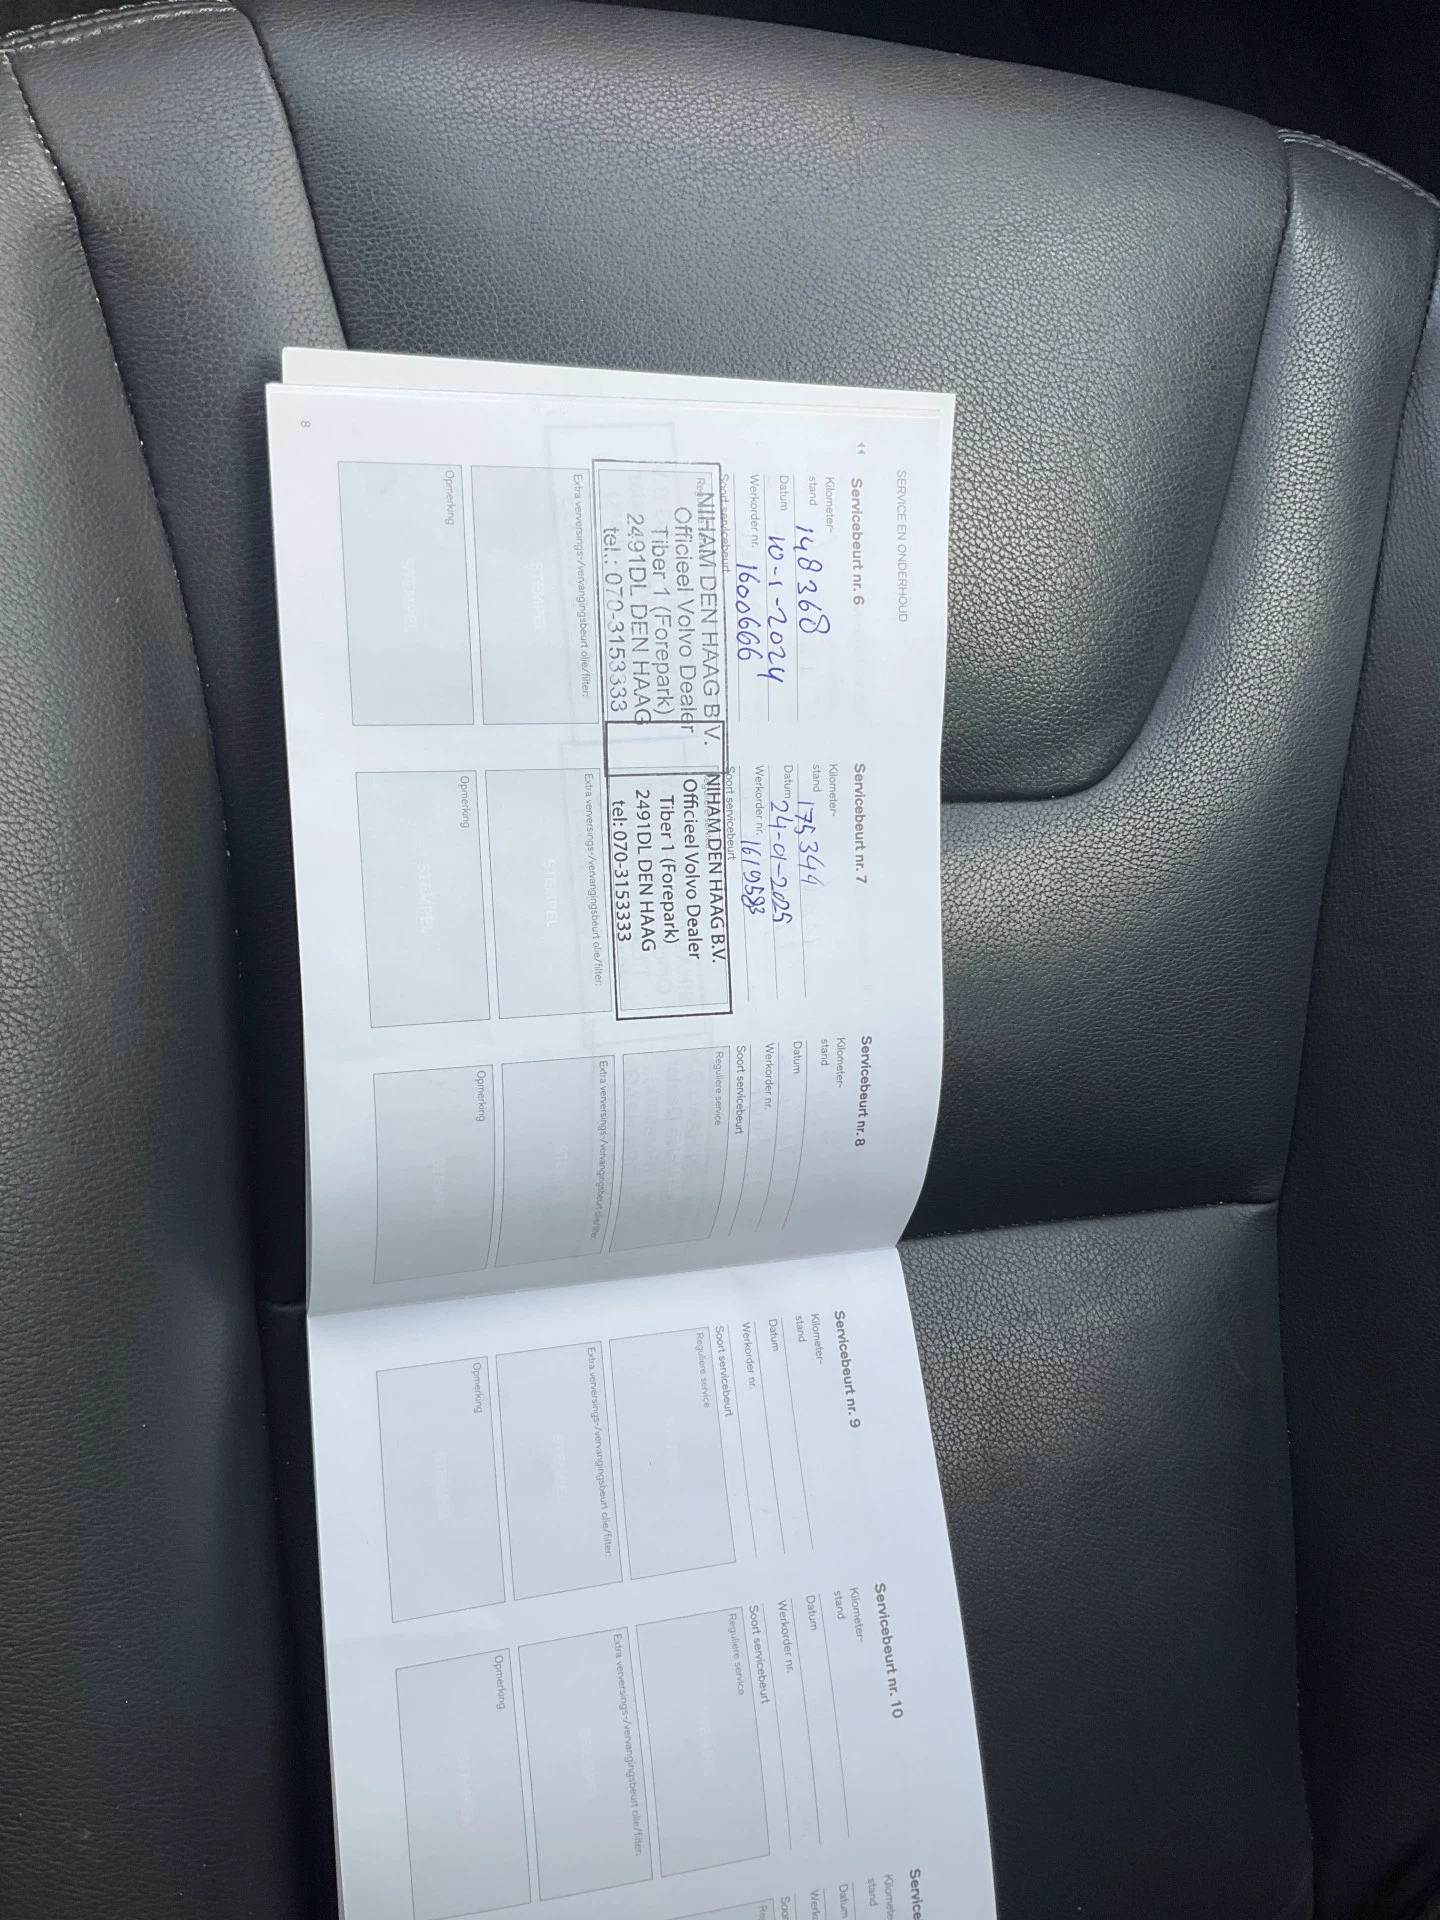 SERVICE EN ONDERHOUD
Servicebeurt nr. 6
Kilometer-
stand 148368
Datum 10-1-2024
Werkorder nr. 1600666
Soort servicebeurt
NIHAM DEN HAAG B.V.
Officieel Volvo Dealer
Tiber 1 (Forepark)
2491DL DEN HAAG
tel.: 070-3153333
Extra verversings-/vervangingsbeurt olie/filter:
STEMPEL
Opmerking
STEMPEL
Servicebeurt nr. 7
Kilometer-
stand 175344
Datum 24-01-2025
Werkorder nr. 1619583
Soort servicebeurt
NIHAM DEN HAAG B.V.
Officieel Volvo Dealer
Tiber 1 (Forepark)
2491DL DEN HAAG
tel: 070-3153333
Extra verversings-/vervangingsbeurt olie/filter:
STEMPEL
Opmerking
STEMPEL
Servicebeurt nr. 8
Kilometer-
stand
Datum
Werkorder nr.
Soort servicebeurt
Reguliere service
Extra verversings-/vervangingsbeurt olie/filter:
Opmerking
8
Servicebeurt nr. 9
Kilometer-
stand
Datum
Werkorder nr.
Soort servicebeurt
Reguliere service
Extra verversings-/vervangingsbeurt olie/filter:
Opmerking
Servicebeurt nr. 10
Kilometer-
stand
Datum
Werkorder nr.
Soort servicebeurt
Reguliere service
Extra verversings-/vervangingsbeurt olie/filter:
Opmerking
Service
Kilomete
stand
Datum
Werk
Soor
Re